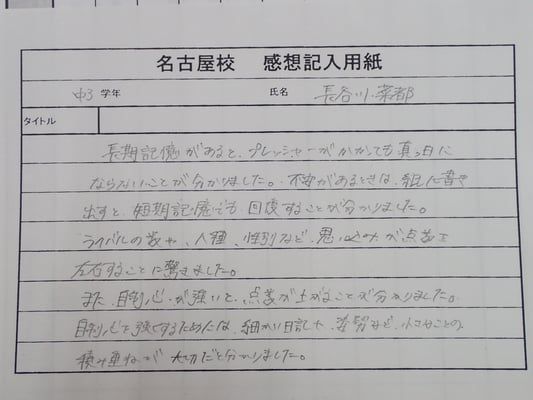 名古屋校 感想記入用紙
中3 学年 氏名 長谷川 菜都
タイトル
長期記憶があると、プレッシャーがかかっても真っ白に
ならないことが分かりました。不安があるときは、紙に書き
出すと、短期記憶でも回復することが分かりました。
ライバルの数や、人種、性別など、思い込みが点数を
左右することに驚きました。
また、自制心が強いと、点数が上がることが分かりました。
自制心を強くするためには、細かい日記や、姿勢など、小さなことの
積み重ねが大切だと分かりました。